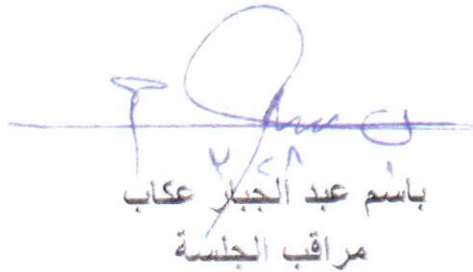 باسم عبد الجبار عكاب
مراقب الجلسة